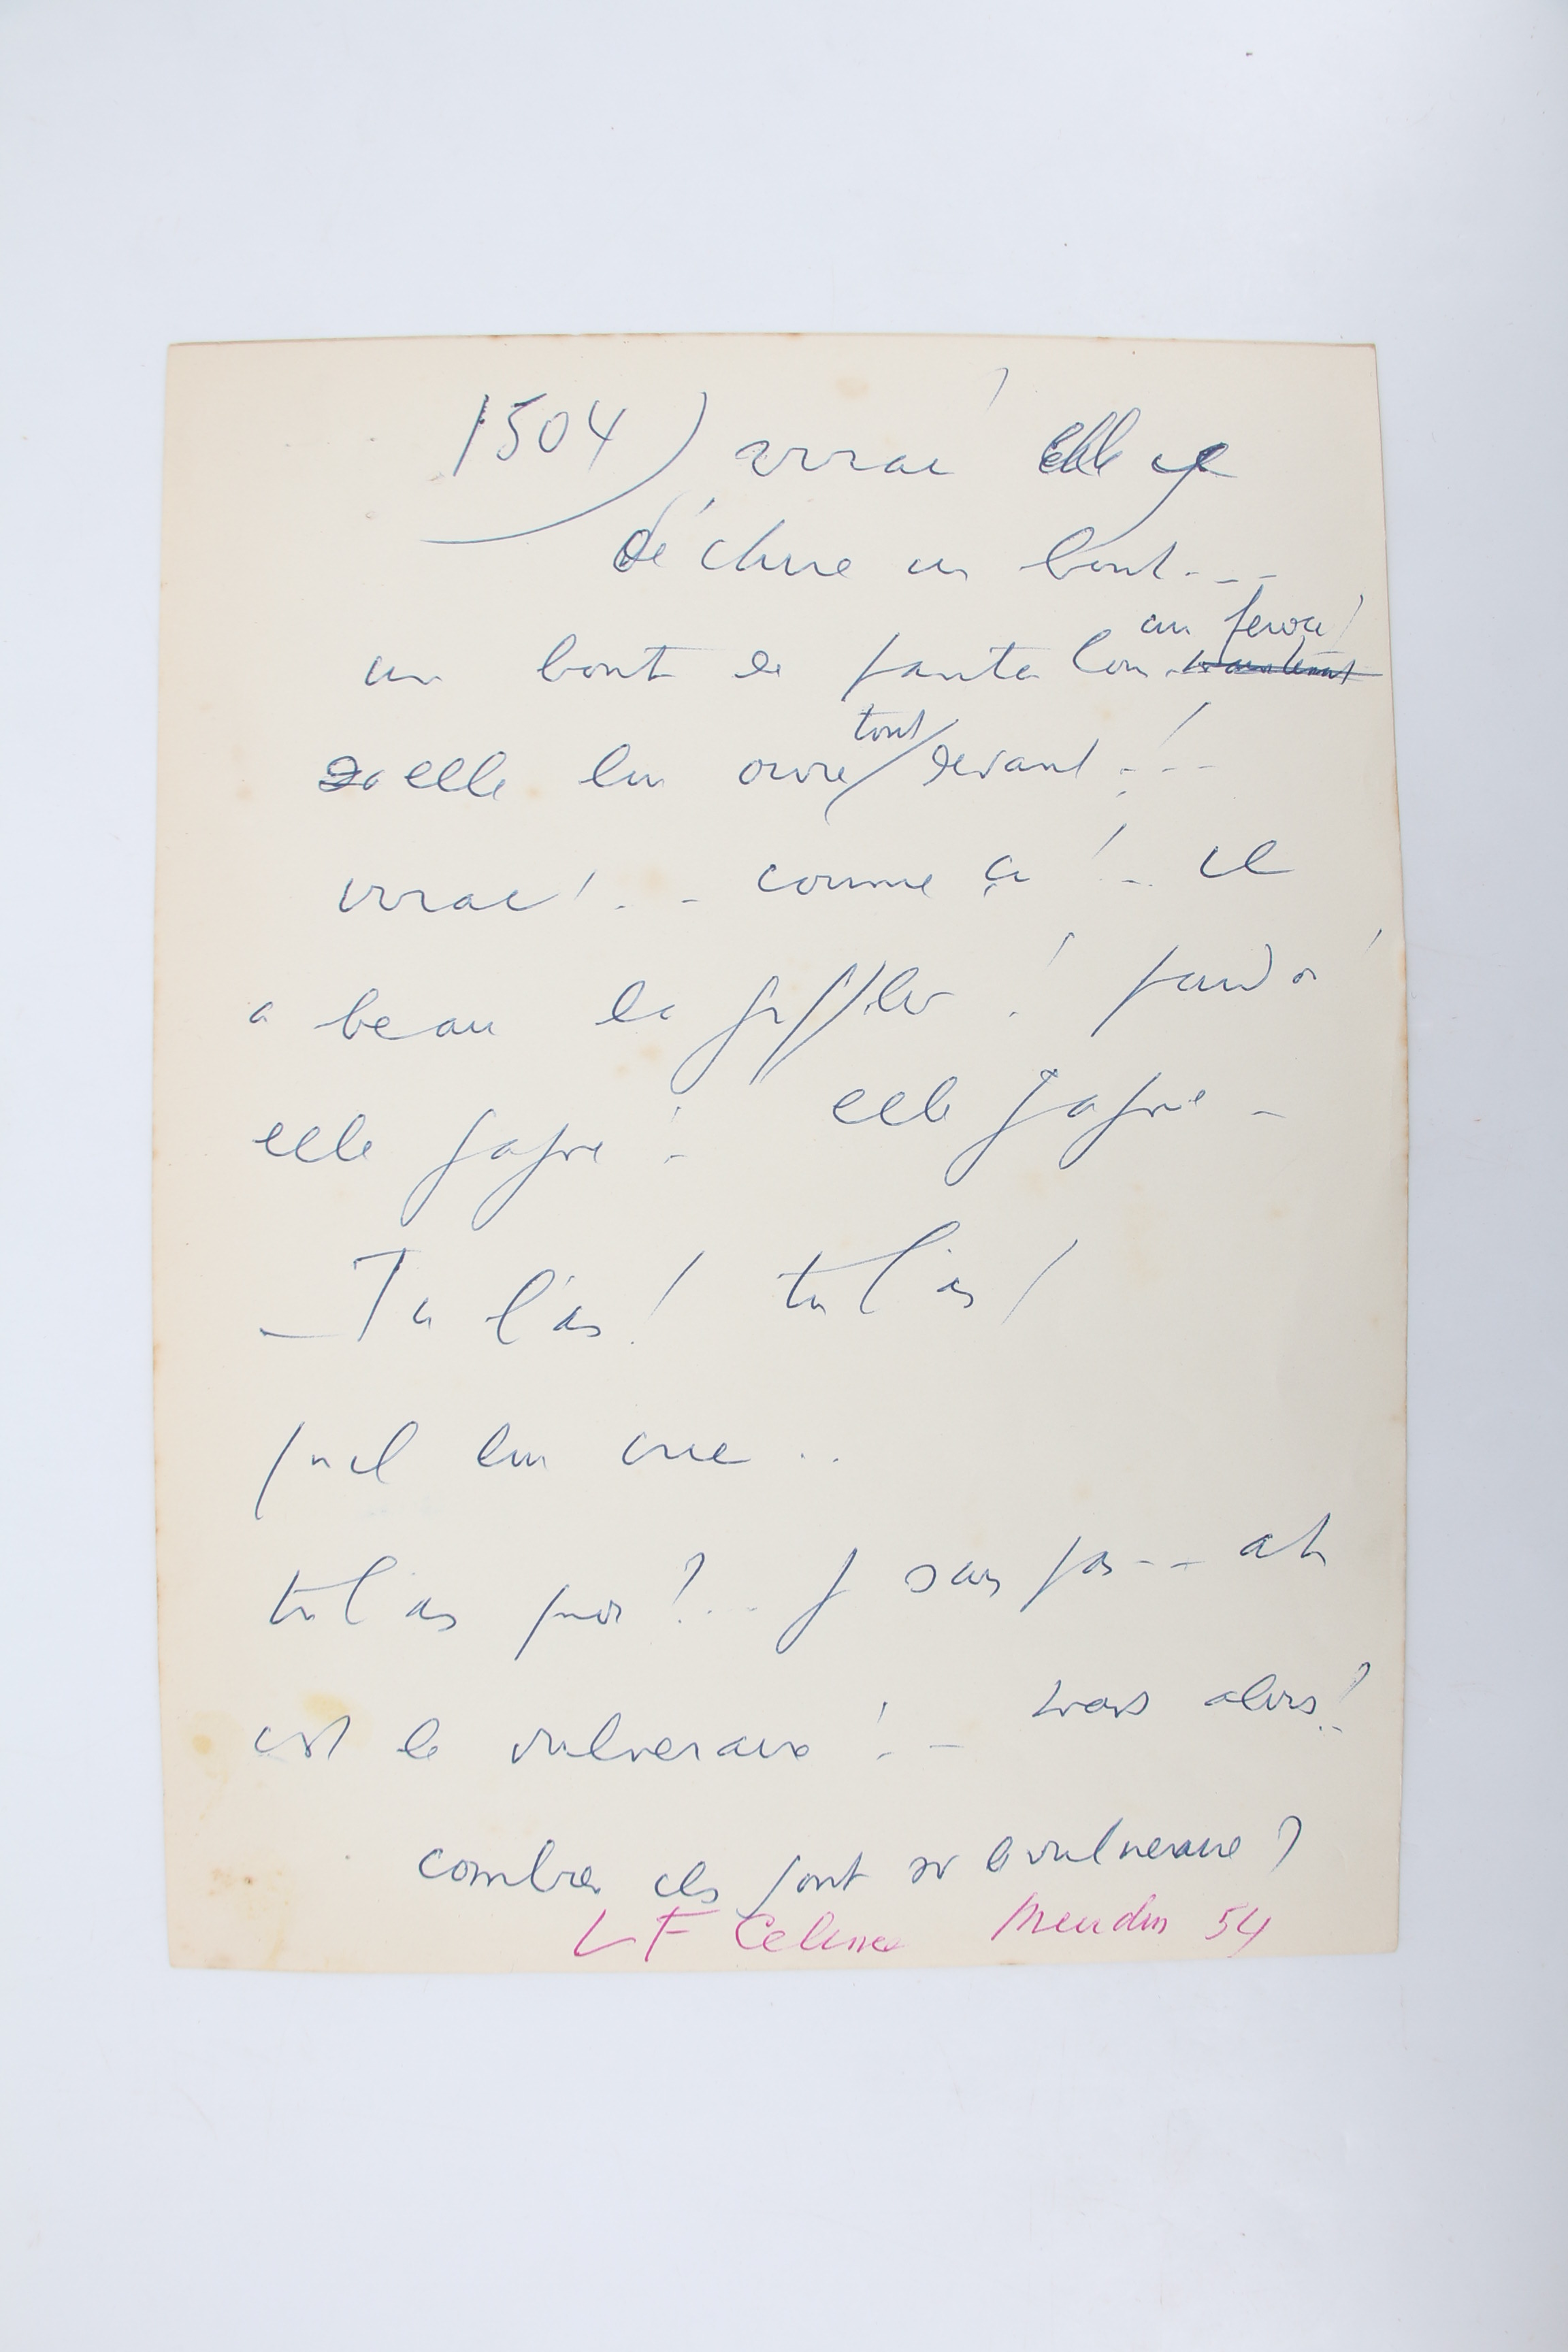 1504) vrrac! Elle y
déchire un bout...
un bout de pantalon au feroce!
elle lui ouvre tout devant!...
vrrac!.. comme ça!.. il
a beau la giffler! pardon!
elle gagne!. elle gagne -
_ Tu l'as! tu l'as!
qu'il lui crie ..
tu l'as quoi?... j sais pas... ah
est le vulneraire!.. mais alors?..
combien ils sont sur le vulneraire?
LF Celine Meudon 54